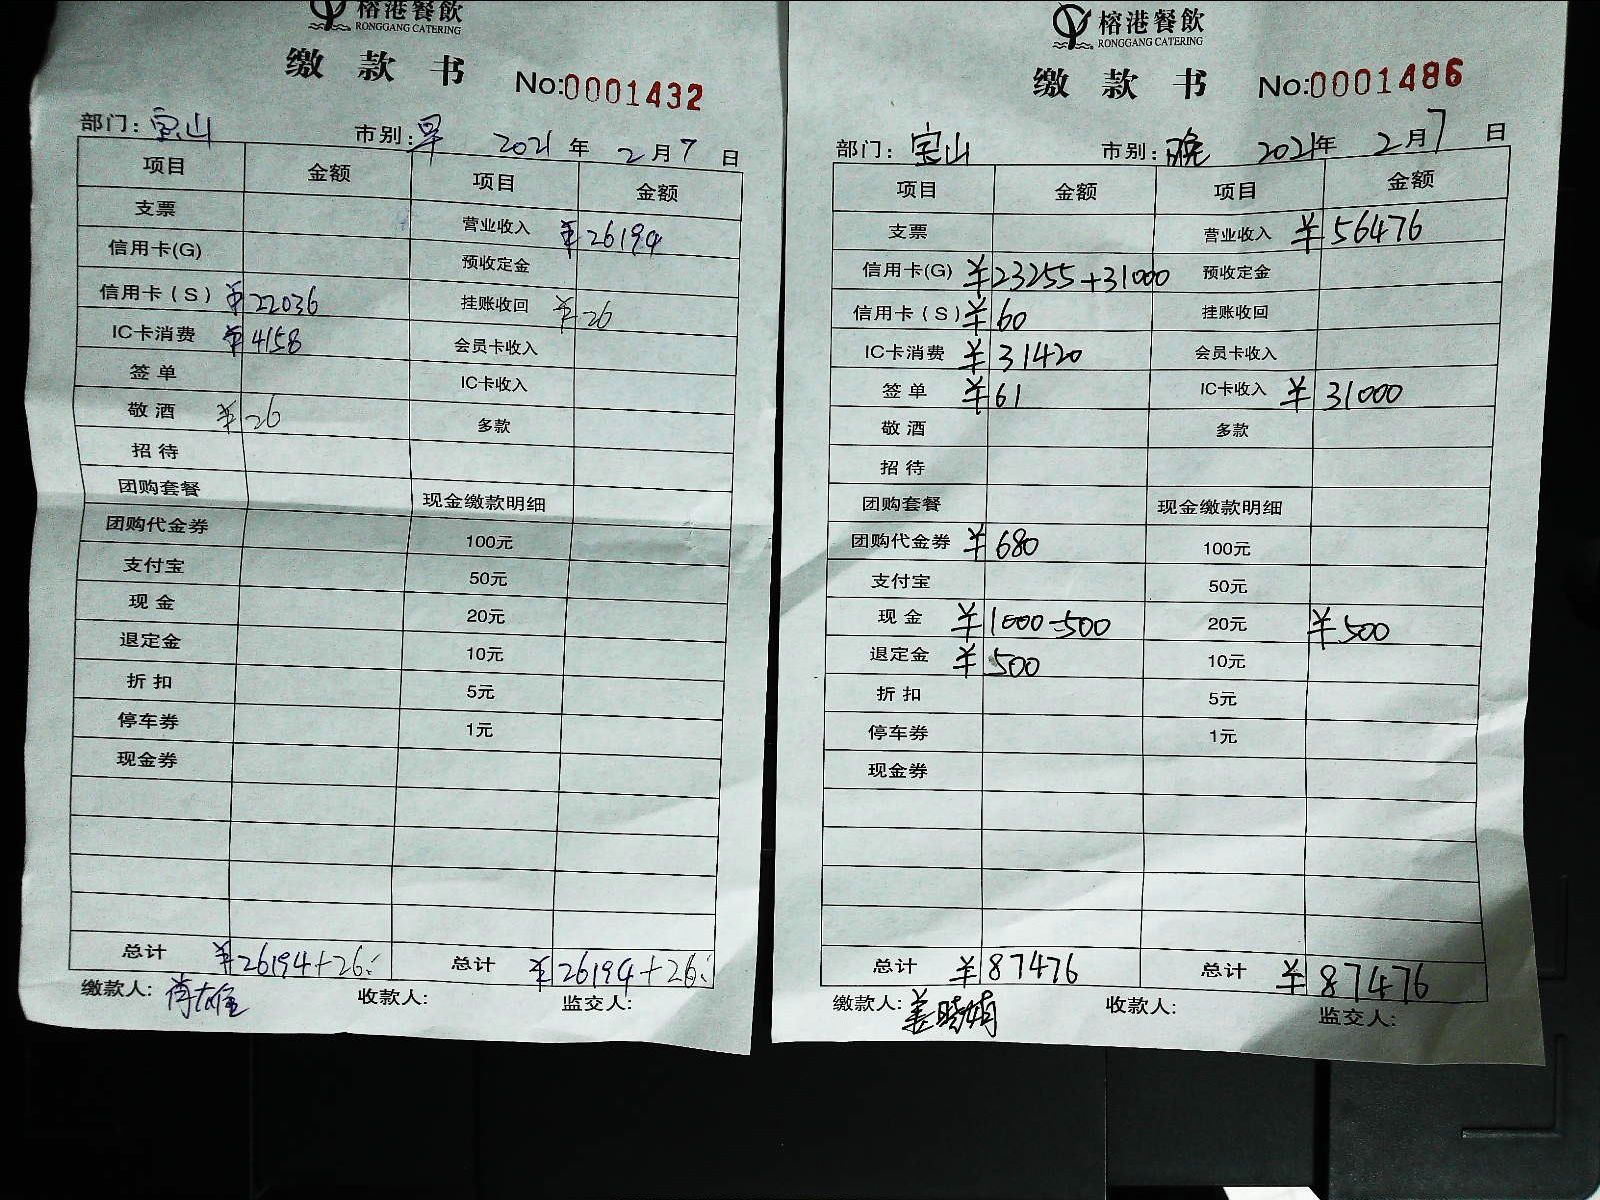 榕港餐飲
RONGGANG CATERING
缴款书 No:0001432
部门：宝山 市别：早 2021年2月7日
项目 金额 项目 金额
支票 营业收入 ¥26194
信用卡(G) 预收定金
信用卡（S） ¥22036 挂账收回 ¥26
IC卡消费 ¥4158 会员卡收入
签单 IC卡收入
敬酒 ¥26 多款
招待
团购套餐 现金缴款明细
团购代金券 100元
支付宝 50元
现金 20元
退定金 10元
折扣 5元
停车券 1元
现金券
总计 ¥26194+26 总计 ¥26194+26
缴款人: 收款人: 监交人:
榕港餐飲
RONGGANG CATERING
缴款书 No:0001486
部门：宝山 市别：晚 2021年2月7日
项目 金额 项目 金额
支票 营业收入 ¥56476
信用卡(G) ¥23255+31000 预收定金
信用卡（S） ¥60 挂账收回
IC卡消费 ¥31420 会员卡收入
签单 ¥61 IC卡收入 ¥31000
敬酒 多款
招待
团购套餐 现金缴款明细
团购代金券 ¥680 100元
支付宝 50元
现金 ¥1000-500 20元 ¥500
退定金 ¥500 10元
折扣 5元
停车券 1元
现金券
总计 ¥87476 总计 ¥87476
缴款人: 姜晓娟 收款人: 监交人: